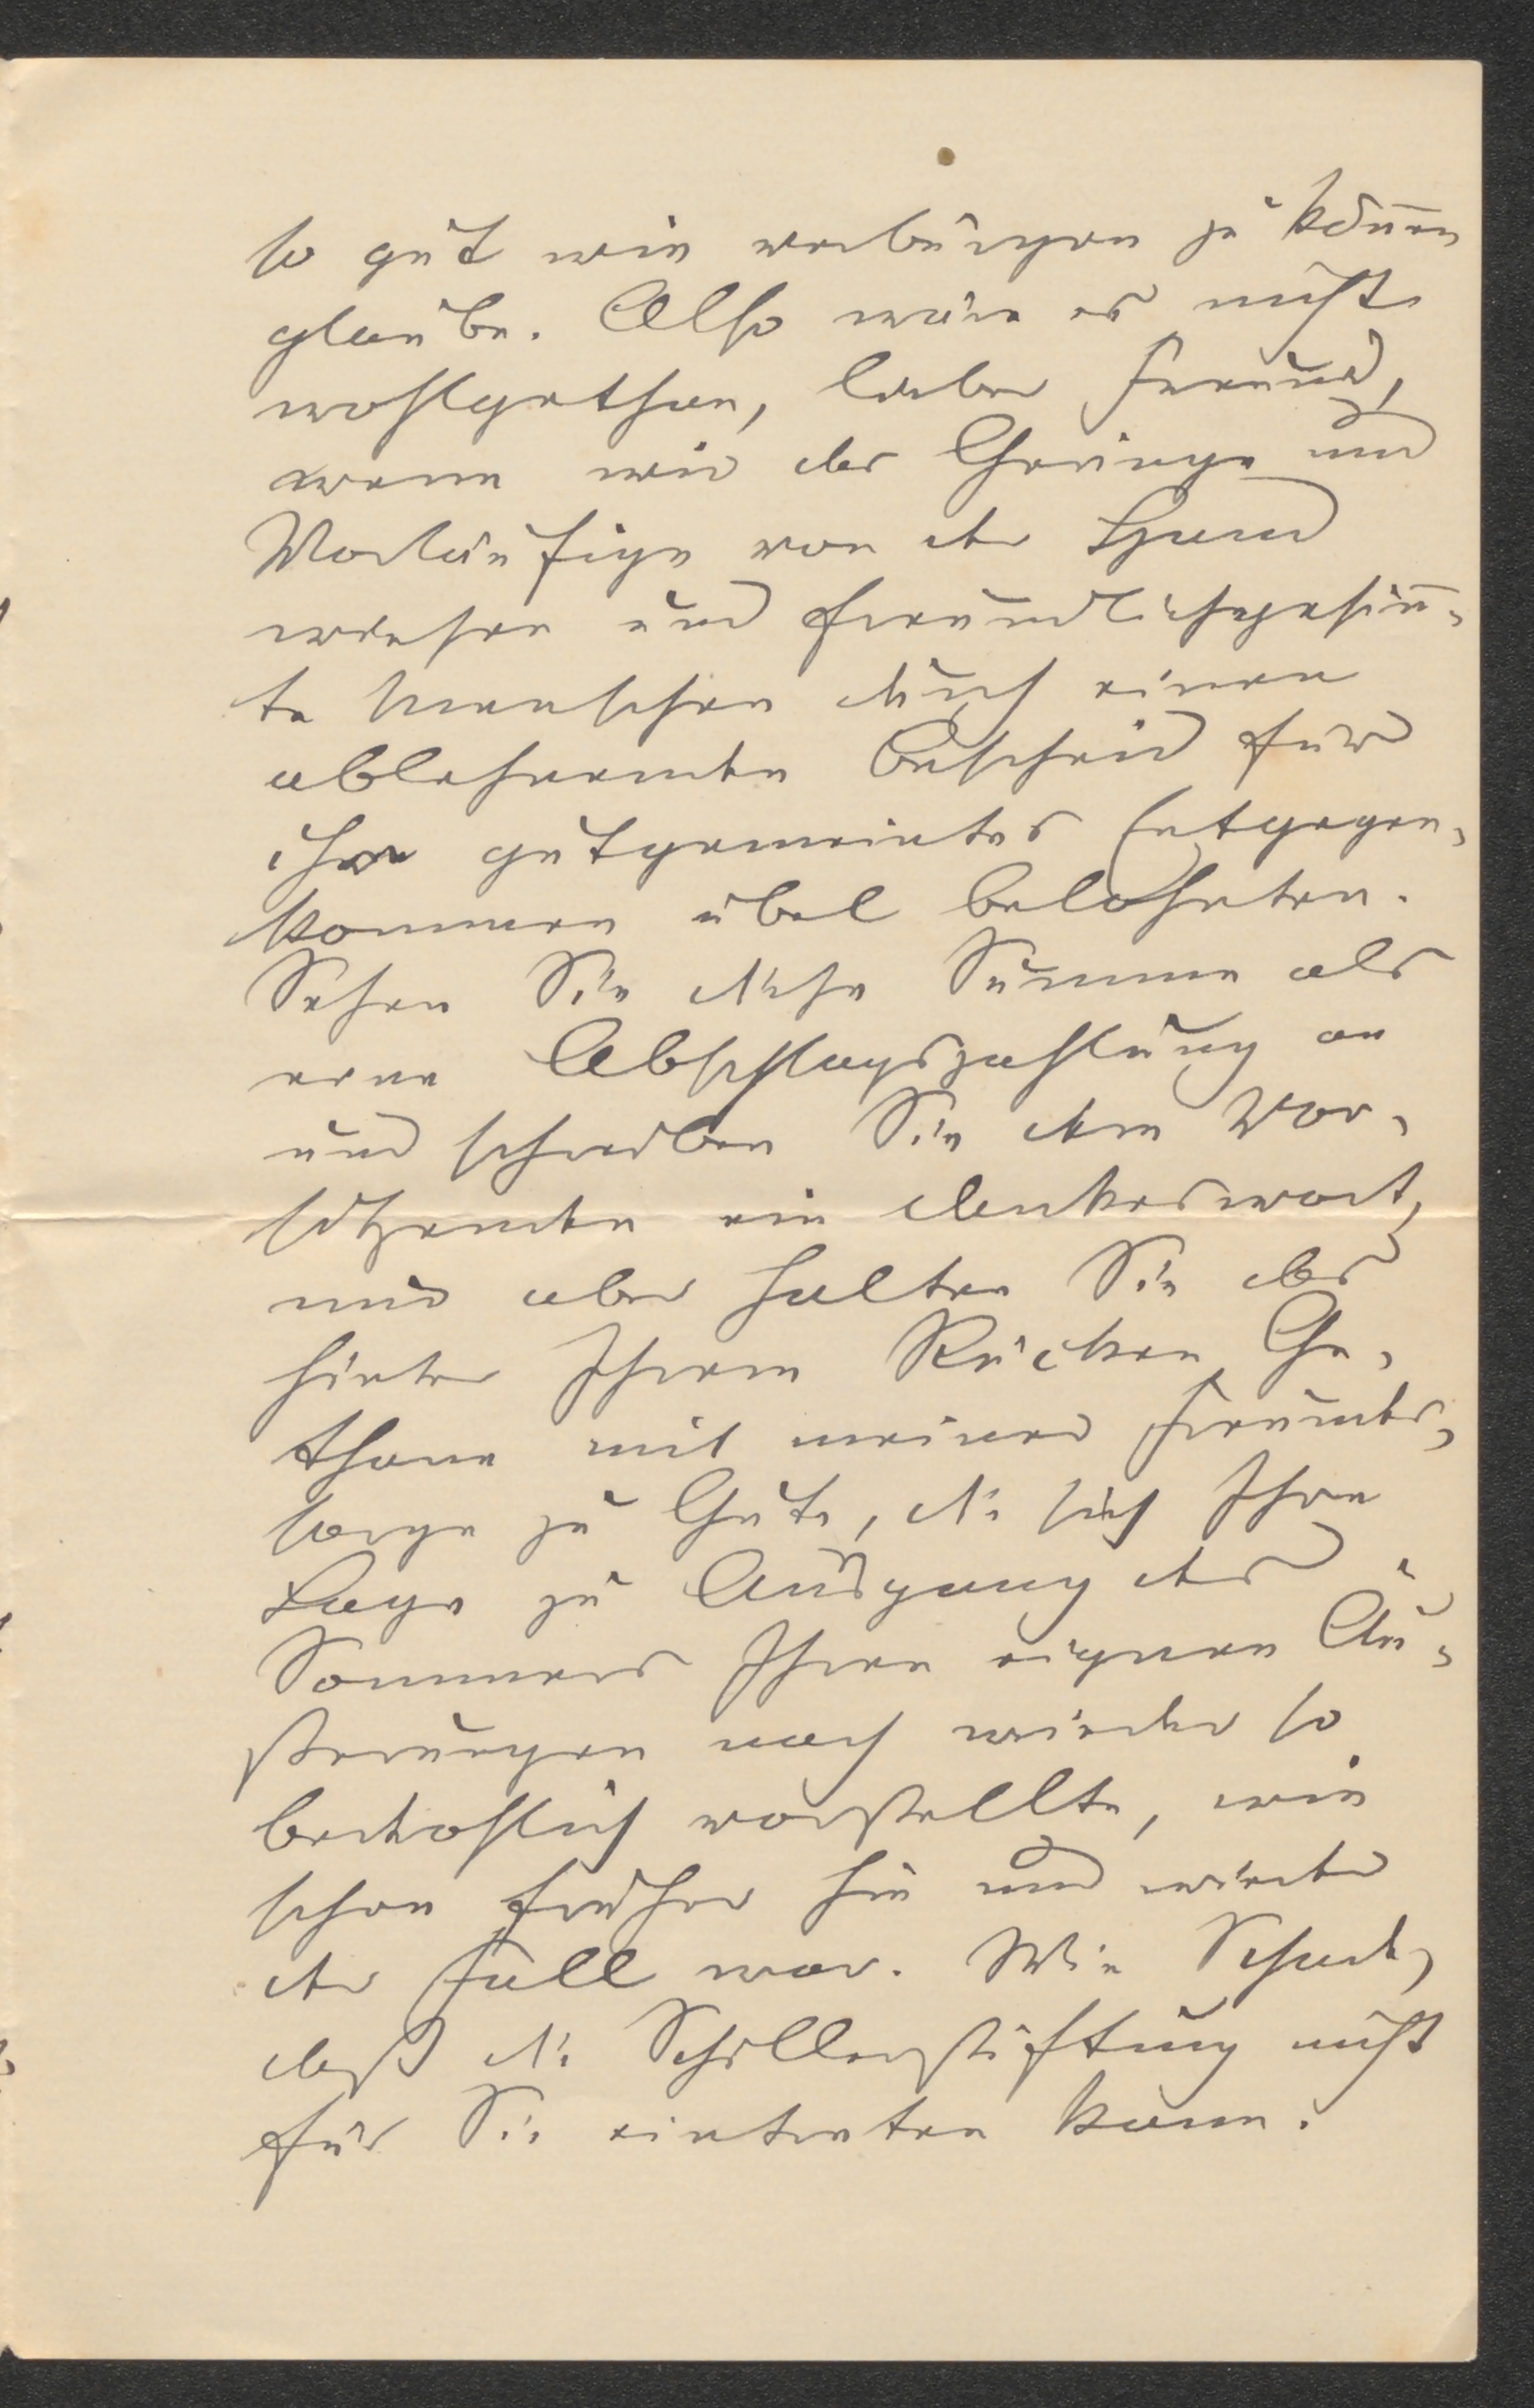 so gut wie verbürgen zu kön̅en
glaube. Also wäre es nicht
wohlgethan, lieber Freund,
wenn wir das Geringe und
Vorläufige von der Hand
wiesen und freundlichgesin̅-
te Menschen durch einen
ablehnenden Bescheid für
ihr gutgemeintes Entgegen-
kommen übel belohnten.
Sehen Sie diese Summe als
eine Abschlagszahlung an
und schreiben Sie dem Vor-
sitzenden ein Dankeswort,
mir aber halten Sie das
hinter Ihrem Rücken Ge-
thane mit meiner Freundes-
sorge zu Gute, die sich Ihre
Lage zu Ausgang des
Sommers Ihren eignen Äu-
ßerungen nach wieder so
bedrohlich vorstellte, wie
schon früher hin und wieder
der Fall war. Wie Schade,
daß die Schillerstiftung nicht
für Sie eintreten kann!